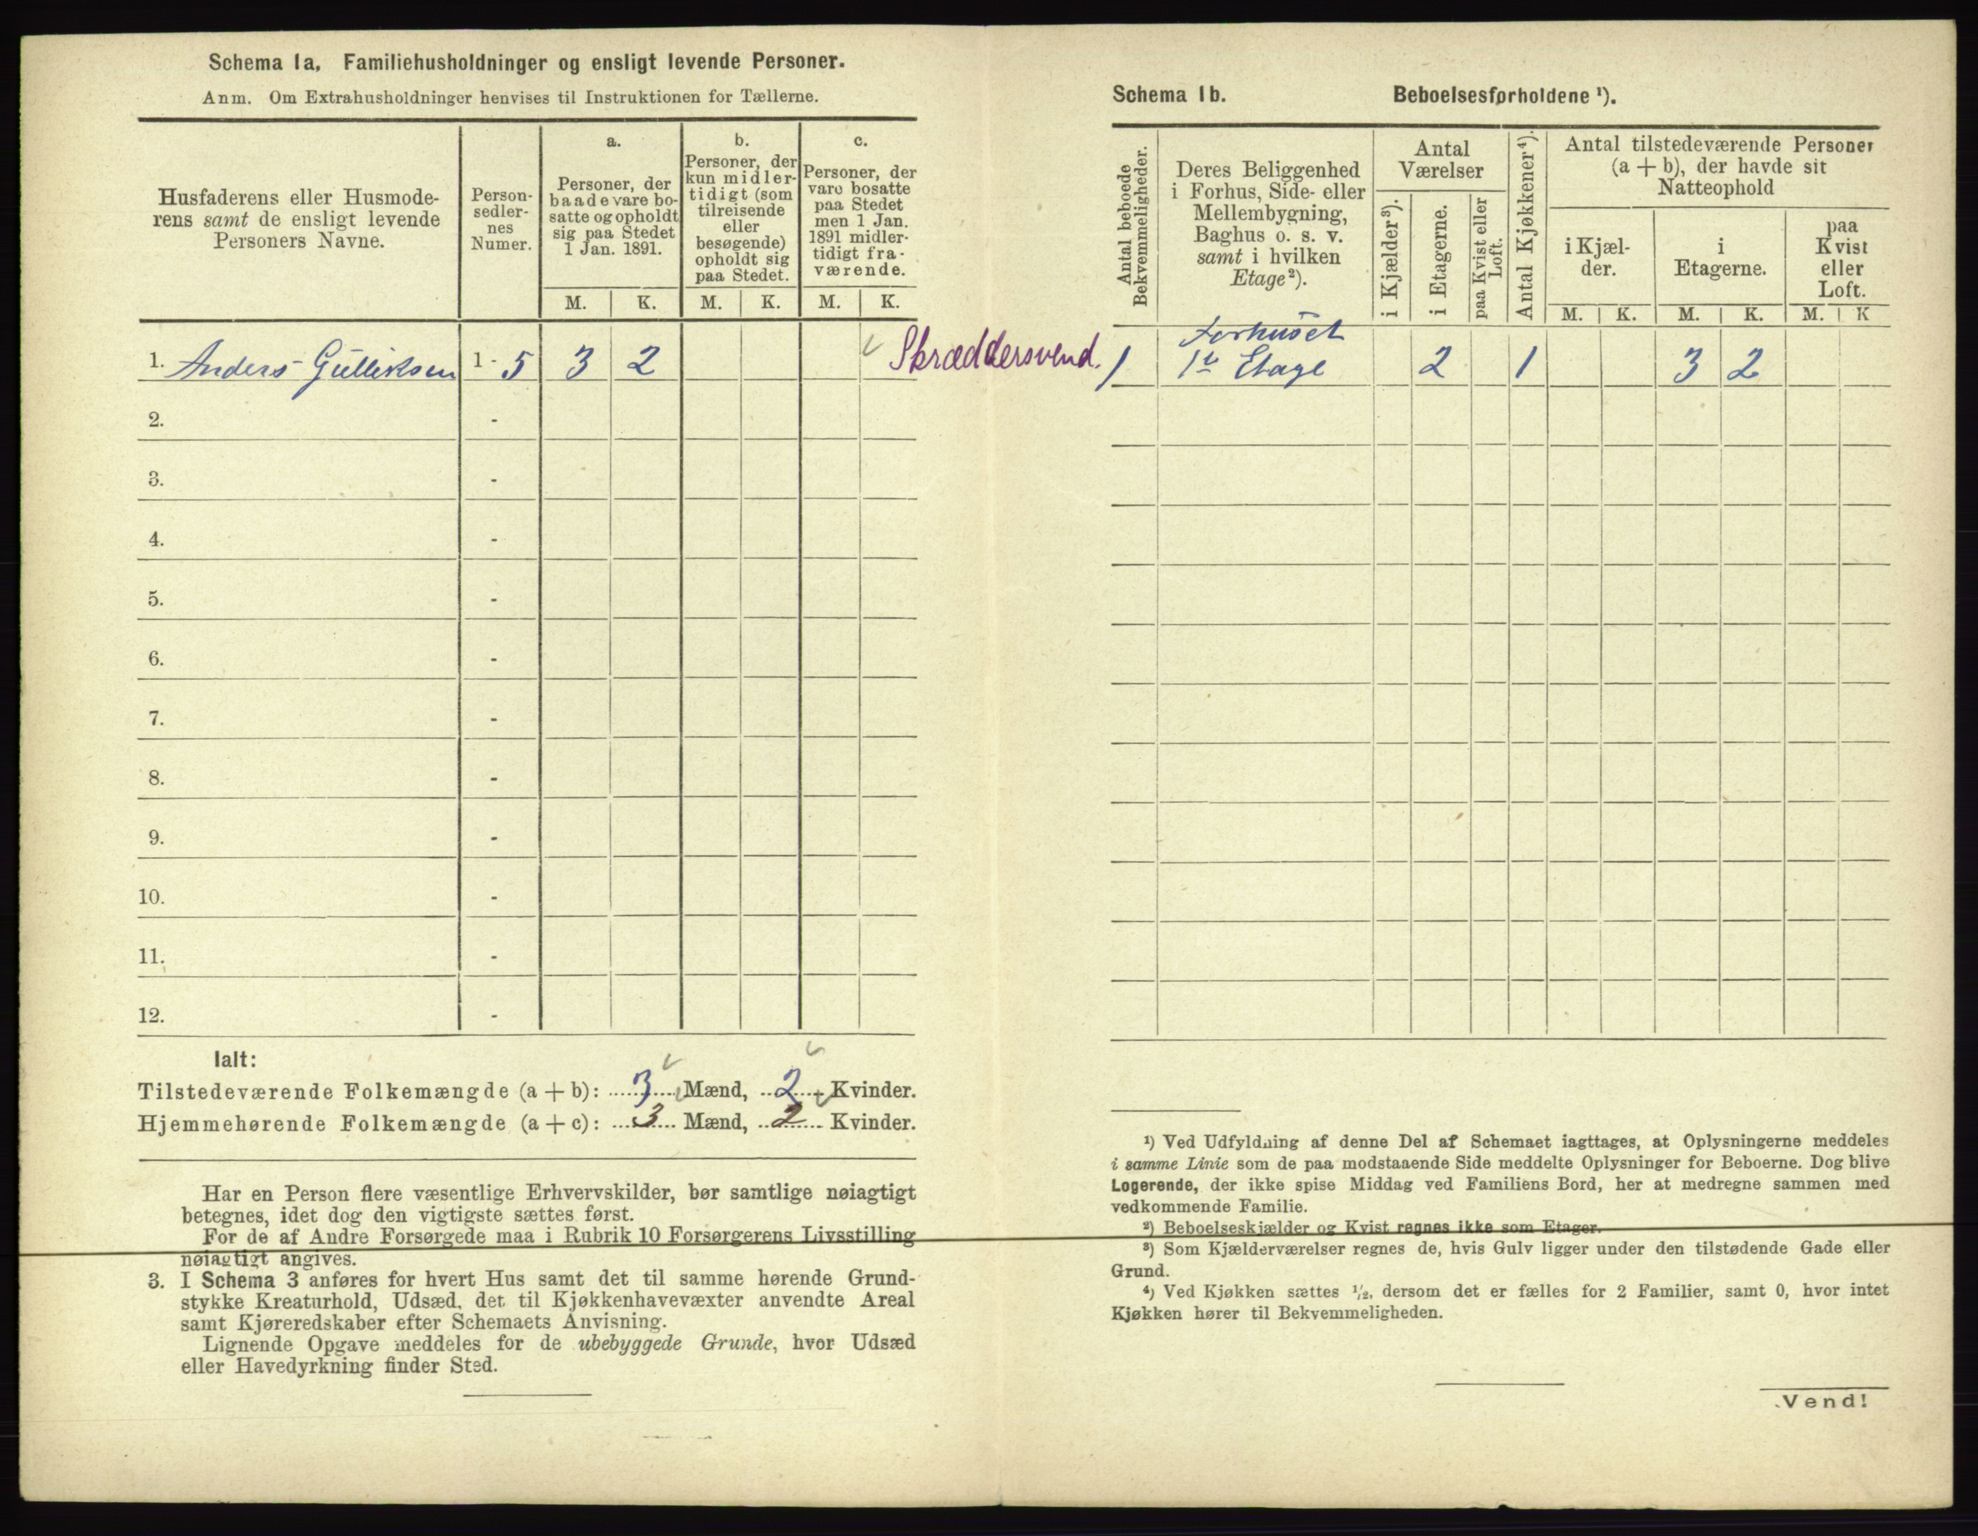 Schema 1a. Familiehusholdninger og ensligt levende Personer.
Anm. Om Extrahusholdninger henvises til Instruktionen for Tællerne.
Husfaderens eller Husmode-
rens samt de ensligt levende
Personers Navne.
Person-
sedler-
nes
Numer.
a.
Personer, der
baade vare bo-
satte og opholdt
sig paa Stedet
1 Jan. 1891.
b.
Personer, der
kun midler-
tidigt (som
tilreisende
eller
besøgende)
opholdt sig
paa Stedet.
c.
Personer, der
vare bosatte
paa Stedet
men 1 Jan.
1891 midler-
tidigt fra-
værende.
M. K. M. K. M. K.
1. Anders Gulliksen 1 - 5 3 2 Skræddersvend.
2. -
3. -
4. -
5. -
6. -
7. -
8. -
9. -
10. -
11. -
12. -
Ialt:
Tilstedeværende Folkemængde (a + b): 3 Mænd, 2 Kvinder.
Hjemmehørende Folkemængde (a + c): 3 Mænd, 2 Kvinder.
Har en Person flere væsentlige Erhvervskilder, bør samtlige nøiagtigt
betegnes, idet dog den vigtigste sættes først.
For de af Andre Forsørgede maa i Rubrik 10 Forsørgerens Livsstilling
nøiagtigt angives.
3. I Schema 3 anføres for hvert Hus samt det til samme hørende Grund-
stykke Kreaturhold, Udsæd, det til Kjøkkenhavevæxter anvendte Areal
samt Kjøreredskaber efter Schemaets Anvisning.
Lignende Opgave meddeles for de ubebyggede Grunde, hvor Udsæd
eller Havedyrkning finder Sted.
Schema 1b. Beboelsesforholdene ¹).
Antal beboede
Bekvemmeligheder.
Deres Beliggenhed
i Forhus, Side- eller
Mellembygning,
Baghus o. s. v.
samt i hvilken
Etage²).
Antal
Værelser
i Kjælder³).
i Etagerne.
paa Kvist eller
Loft.
Antal Kjøkkener⁴).
Antal tilstedeværende Personer
(a + b), der havde sit
Natteophold
i Kjæl-
der.
i
Etagerne.
paa
Kvist
eller
Loft.
M. K. M. K. M. K
Forhuset
1 1ste Etage 2 1 3 2
¹) Ved Udfyldning af denne Del af Schemaet iagttages, at Oplysningerne meddeles
i samme Linie som de paa modstaaende Side meddelte Oplysninger for Beboerne. Dog blive
Logerende, der ikke spise Middag ved Familiens Bord, her at medregne sammen med
vedkommende Familie.
²) Beboelseskjælder og Kvist regnes ikke som Etager.
³) Som Kjælderværelser regnes de, hvis Gulv ligger under den tilstødende Gade eller
Grund.
⁴) Ved Kjøkken sættes ½, dersom det er fælles for 2 Familier, samt 0, hvor intet
Kjøkken hører til Bekvemmeligheden.
Vend!